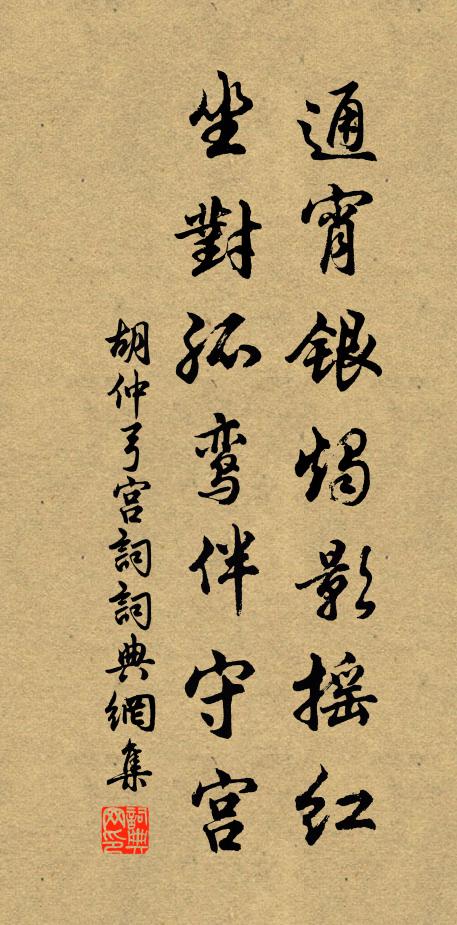 通宵銀燭影摇红
坐對孤鸾伴守宫
胡仲弓宫詞詞典網集
詞典网印